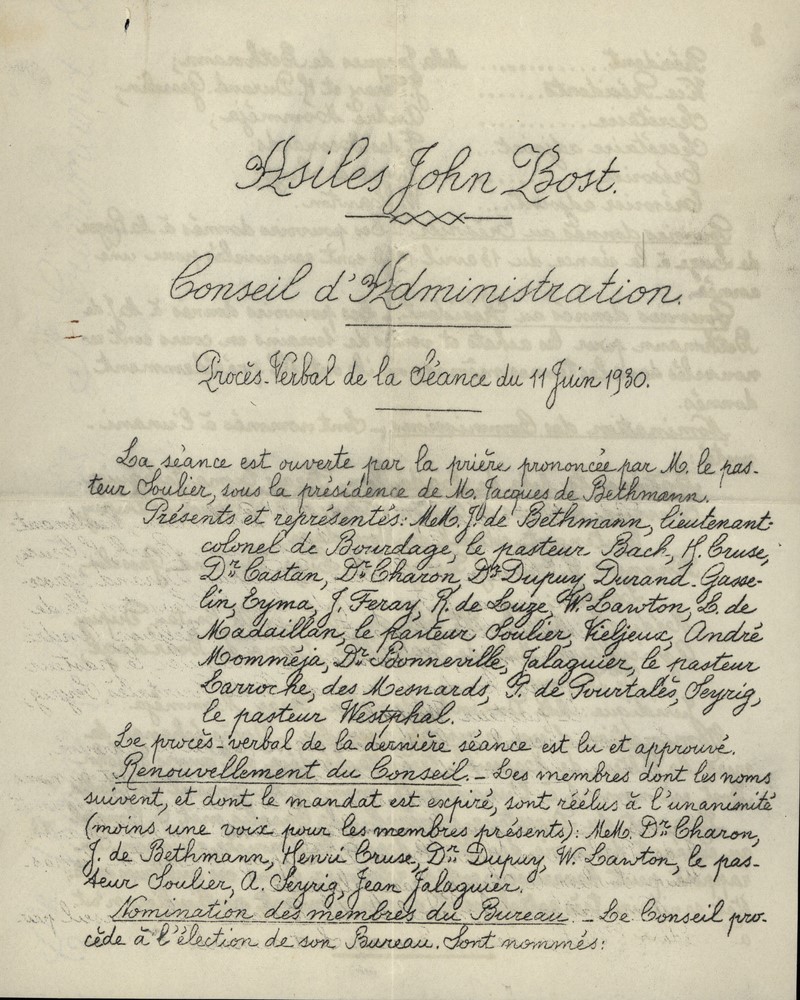 Asiles John Bost.
Conseil d'Administration.
Procès-Verbal de la Séance du 11 Juin 1930.
La séance est ouverte par la prière prononcée par M. le pas-
teur Soulier, sous la présidence de M. Jacques de Bethmann.
Présents et représentés: MM. J. de Bethmann, lieutenant-
colonel de Bourdage, le pasteur Bach, H. Cruse,
Dr. Castan, Dr. Charon, Dr. Dupuy, Durand-Gasse-
lin, Eyma, J. Feray, R. de Luze, W. Lawton, L. de
Madaillan, le pasteur Soulier, Vieljeux, André
Momméja, Dr. Bonneville, Jalaguier, le pasteur
Larroche, des Mesnards, P. de Pourtalès, Seyrig,
le pasteur Westphal.
Le procès-verbal de la dernière séance est lu et approuvé.
Renouvellement du Conseil. - Les membres dont les noms
suivent, et dont le mandat est expiré, sont réélus à l'unanimité
(moins une voix pour les membres présents): MM. Dr. Charon,
J. de Bethmann, Henri Cruse, Dr. Dupuy, W. Lawton, le pas-
teur Soulier, A. Seyrig, Jean Jalaguier.
Nomination des membres du Bureau. - Le Conseil pro-
cède à l'élection de son Bureau. Sont nommés: